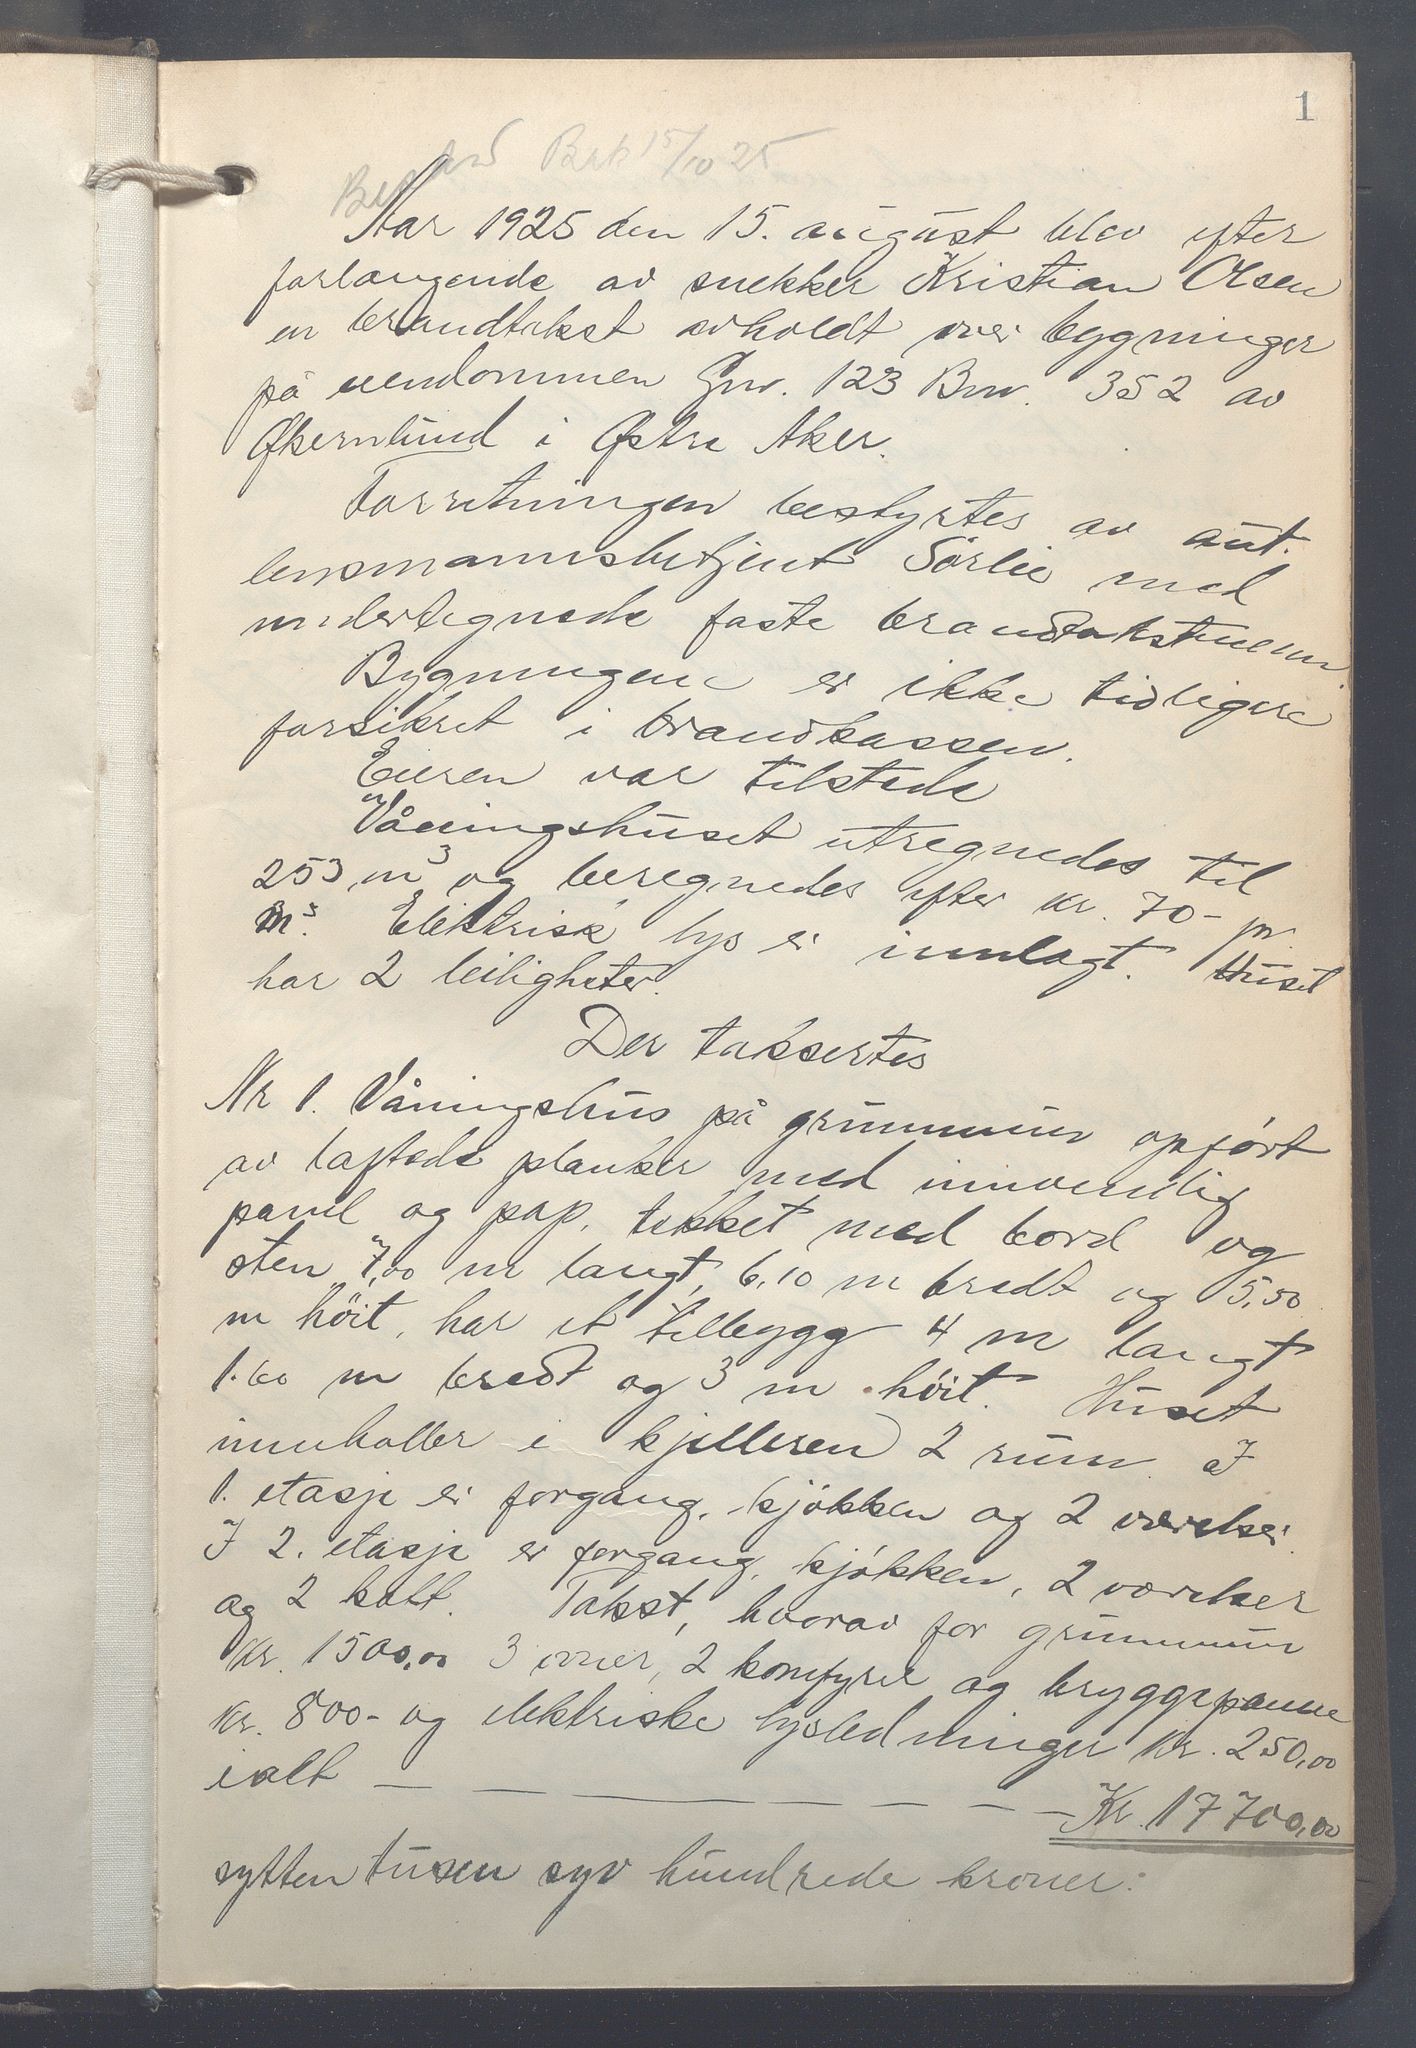 1
Bek 15/10 25
Aar 1925 den 15. august blev efter
forlangende av snekker Kristian Olsen
en brandtakst avholdt over bygninger
på eiendommen Gnr. 123 Bnr. 352 av
Økernlund i Østre Aker.
Forretningen bestyrtes av aut.
lensmannsbetjent Sörlie med
undertegnede faste brandtakstmenn.
Bygningene er ikke tidligere
forsikret i brandkassen.
Eieren var tilstede
Våningshuset utregnedes til
253 m³ og beregnedes efter kr. 70- pr.
m³. Elektrisk lys er innlagt. Huset
har 2 leiligheter.
Der taksertes
Nr 1. Våningshus på grunnmur opført
av laftede planker med innvendig
panel og pap, tekket med bord og
sten 7,00 m langt, 6,10 m bredt og 5,50
m höit, har et tilbygg 4 m langt
1.60 m bredt og 3 m höit. Huset
inneholder i kjelleren 2 rum. I
1. etasje er forgang, kjökken og 2 værelser.
I 2. etasje er forgang, kjökken, 2 værelser
og 2 kott. Takst, hvorav for grunnmur
Kr. 1500,00 3 ovner, 2 komfyrer og bryggepanne
kr. 800- og elektriske lysledninger kr. 250,00
ialt — — — — — — — — Kr. 17700,00
sytten tusen syv hundrede kroner: